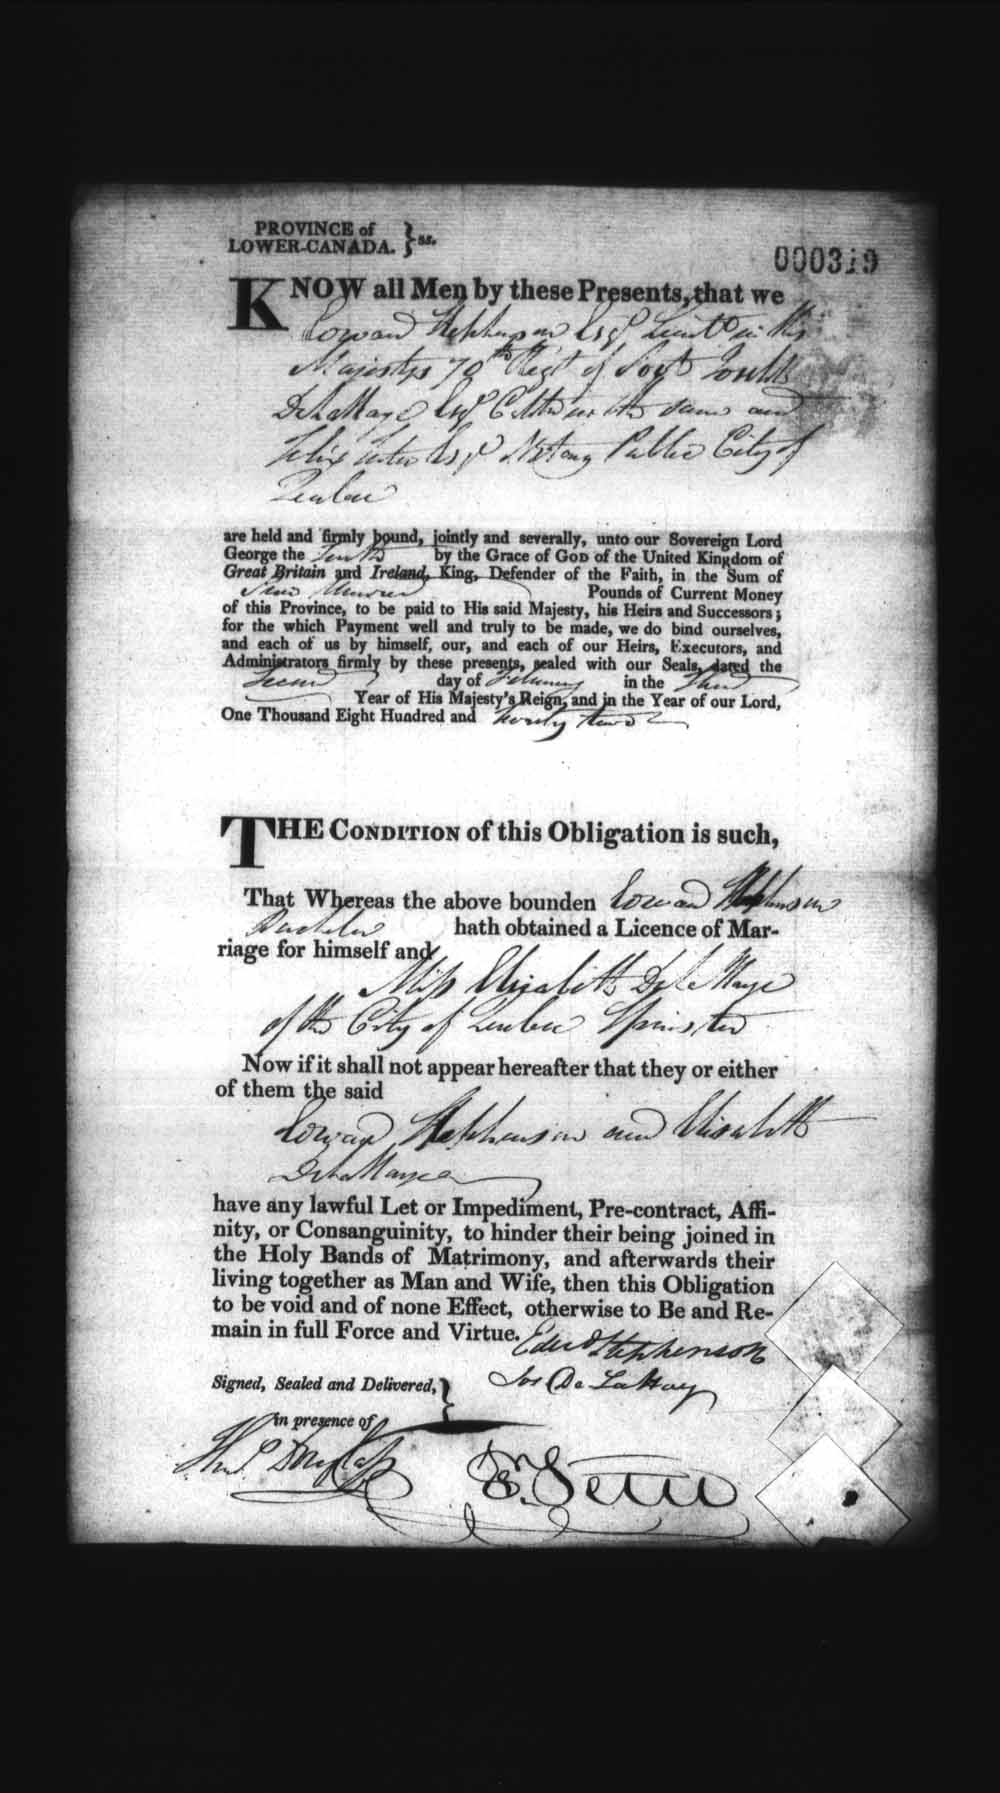 PROVINCE of
LOWER-CANADA. } ss.
000319
KNOW all Men by these Presents, that we
Edward Stephenson Esqr Lieut in His
Majestys 70th Regt of Foot Joseph
DelaHaye Esqr of the same and
Felix Tetu Esqr Notary Public City of
Quebec
are held and firmly bound, jointly and severally, unto our Sovereign Lord
George the Fourth by the Grace of GOD of the United Kingdom of
Great Britain and Ireland, King, Defender of the Faith, in the Sum of
Hundred Pounds of Current Money
of this Province, to be paid to His said Majesty, his Heirs and Successors;
for the which Payment well and truly to be made, we do bind ourselves,
and each of us by himself, our, and each of our Heirs, Executors, and
Administrators firmly by these presents, sealed with our Seals, dated the
Second day of February in the Third
Year of His Majesty's Reign, and in the Year of our Lord,
One Thousand Eight Hundred and twenty two
THE CONDITION of this Obligation is such,
That Whereas the above bounden Edward Stephenson
Bachelor hath obtained a Licence of Mar-
riage for himself and
Miss Elizabeth DelaHaye
of the City of Quebec Spinster
Now if it shall not appear hereafter that they or either
of them the said
Edward Stephenson and Elisabeth
DelaHaye
have any lawful Let or Impediment, Pre-contract, Affi-
nity, or Consanguinity, to hinder their being joined in
the Holy Bands of Matrimony, and afterwards their
living together as Man and Wife, then this Obligation
to be void and of none Effect, otherwise to Be and Re-
main in full Force and Virtue.
Edwd Stephenson
Signed, Sealed and Delivered, }
Jos De LaHay
in presence of
Thos Douglass
F. Tetu